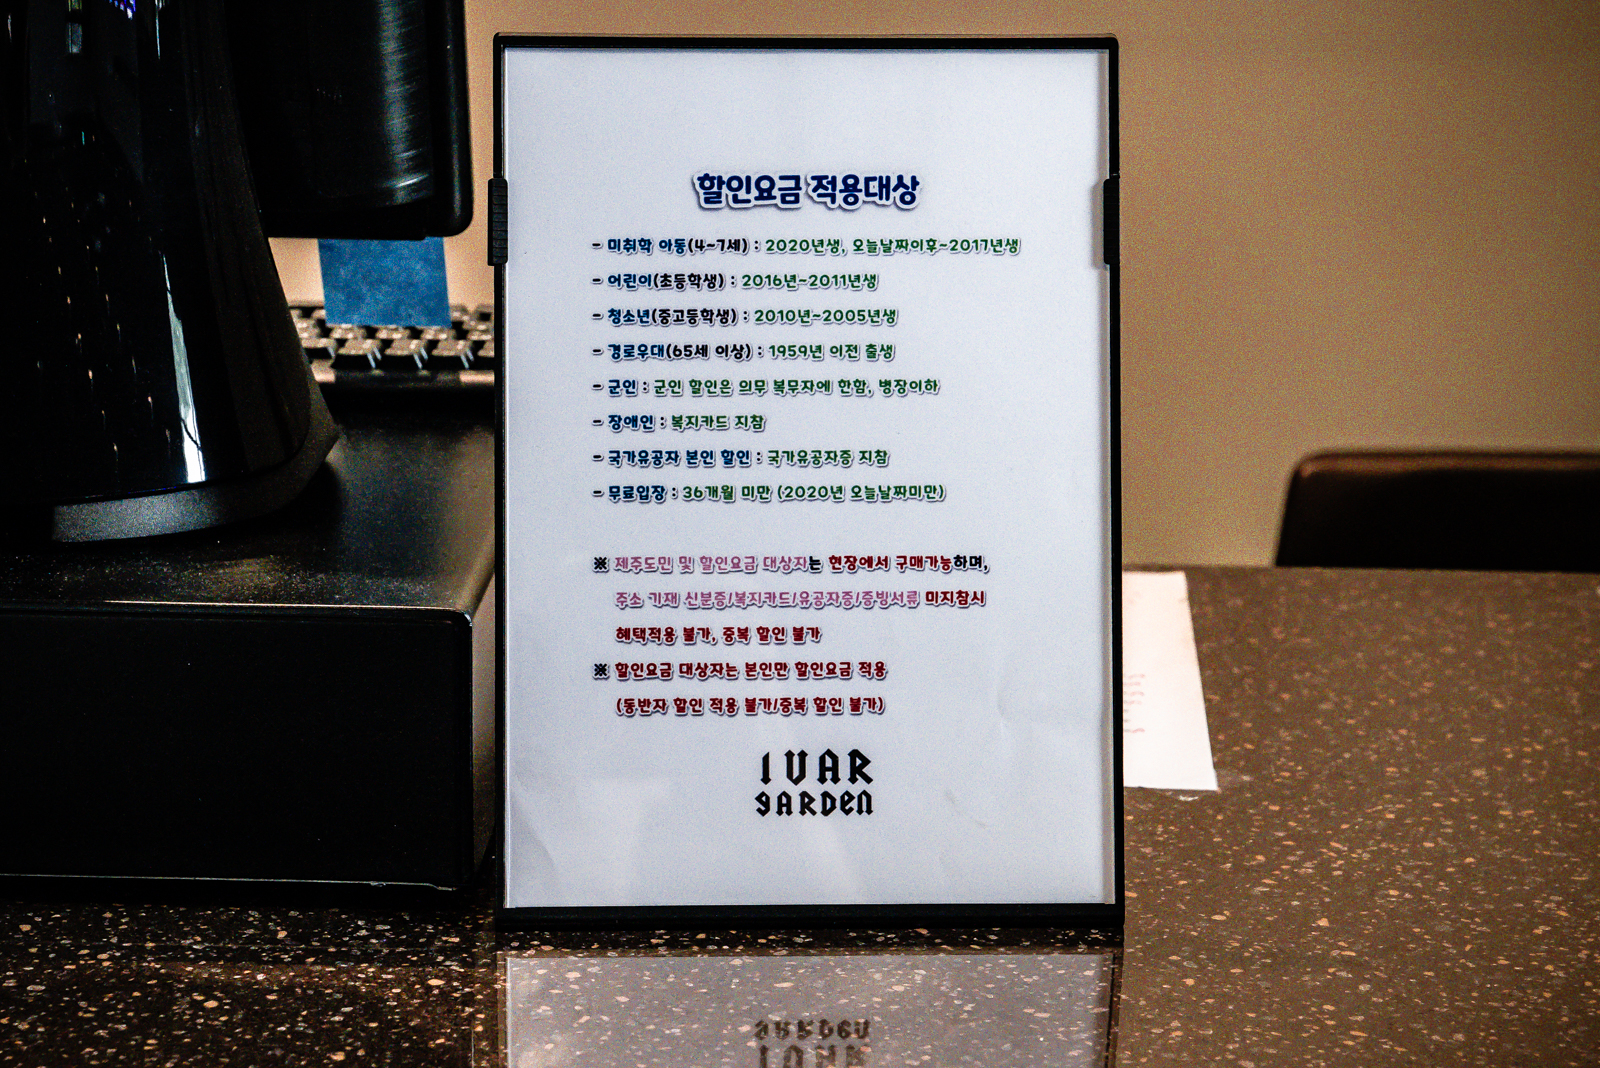 할인요금 적용대상
- 미취학 아동(4~7세) : 2020년생, 오늘날짜이후~2017년생
- 어린이(초등학생) : 2016년~2011년생
- 청소년(중고등학생) : 2010년~2005년생
- 경로우대(65세 이상) : 1959년 이전 출생
- 군인 : 군인 할인은 의무 복무자에 한함, 병장이하
- 장애인 : 복지카드 지참
- 국가유공자 본인 할인 : 국가유공자증 지참
- 무료입장 : 36개월 미만 (2020년 오늘날짜미만)
※ 제주도민 및 할인요금 대상자는 현장에서 구매가능하며,
주소 기재 신분증/복지카드/유공자증/증빙서류 미지참시
혜택적용 불가, 중복 할인 불가
※ 할인요금 대상자는 본인만 할인요금 적용
(동반자 할인 적용 불가/중복 할인 불가)
IVAR
GARDEN